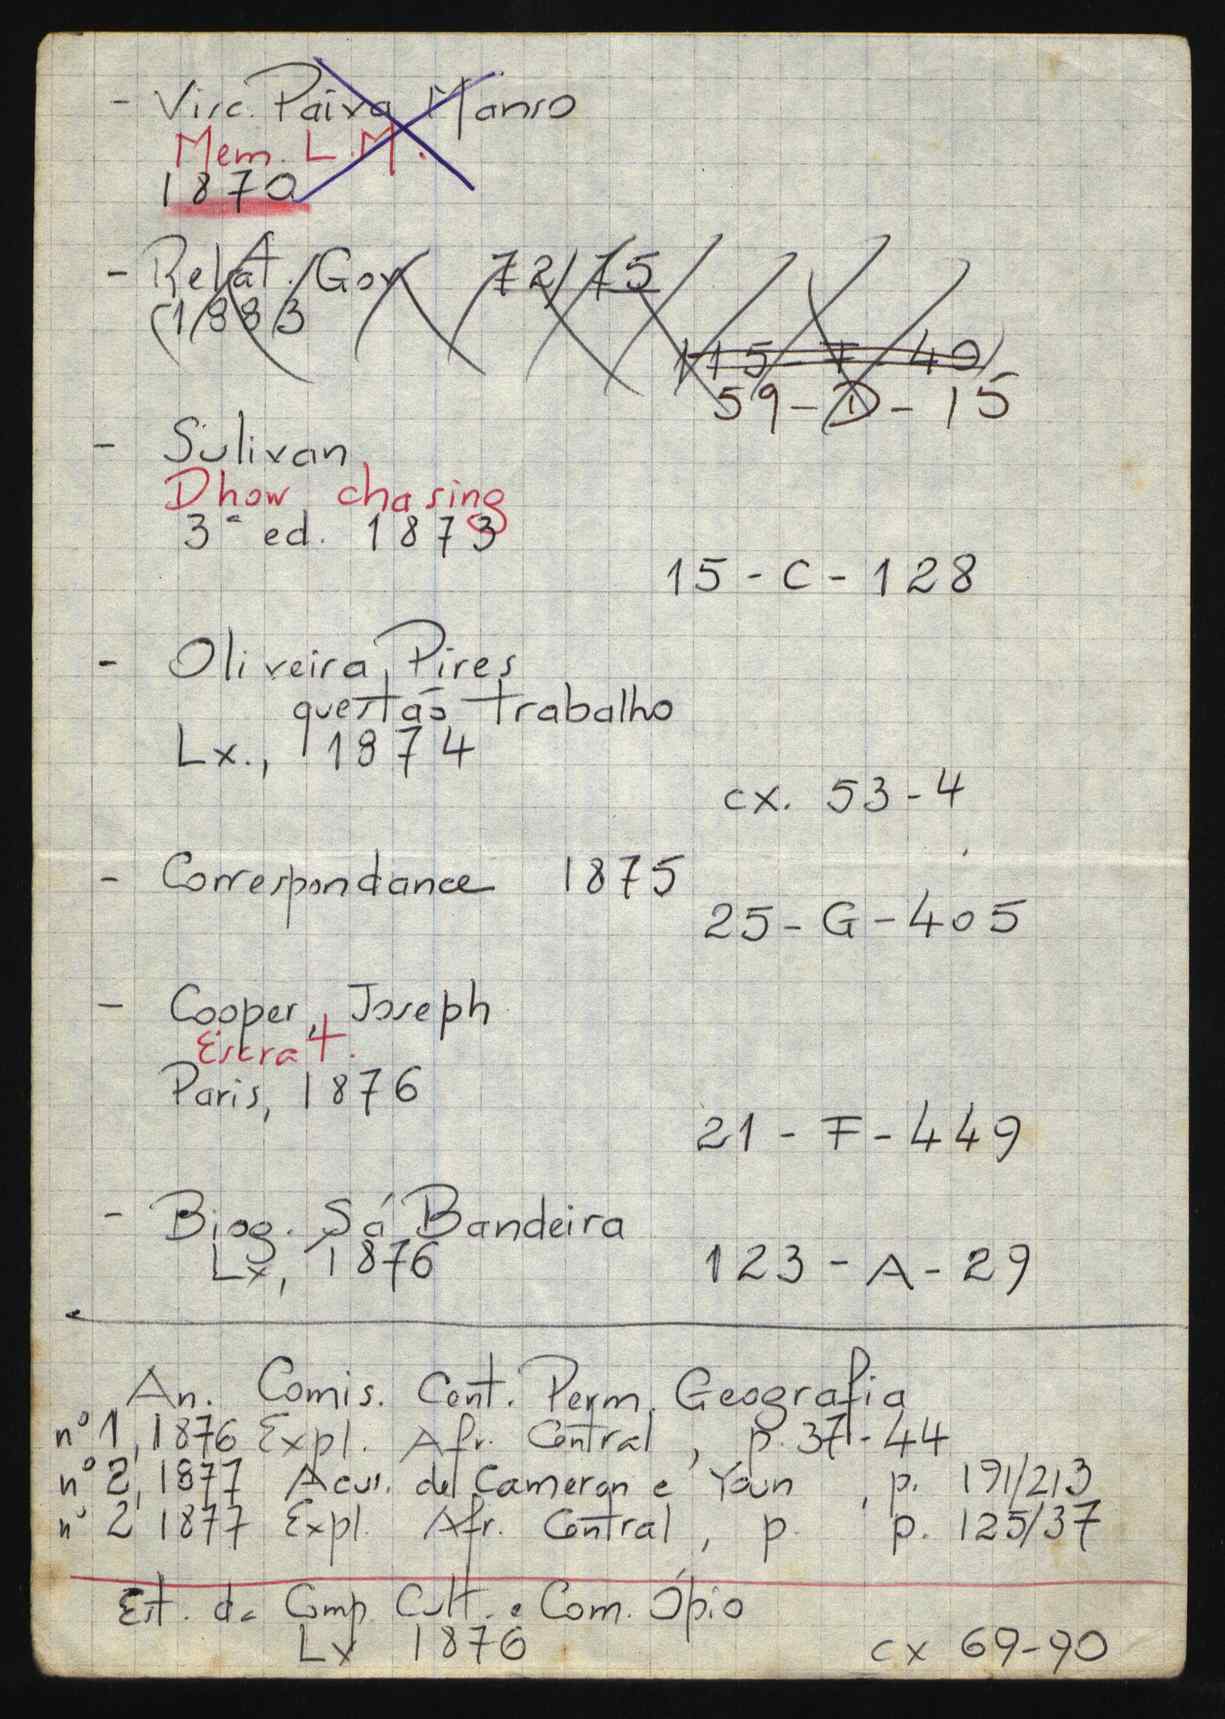 - Visc. Paiva Manso
Mem. L.M.
1870
- Relat. Gov 72/75
(1883
115-F-40
59-D-15
- Sulivan
Dhow chasing
3ª ed. 1873
15-C-128
- Oliveira, Pires
questão trabalho
Lx., 1874
cx. 53-4
- Correspondance 1875
25-G-405
- Cooper, Joseph
Escrat.
Paris, 1876
21-F-449
- Biog. Sá Bandeira
Lx, 1876
123-A-29
An. Comis. Cent. Perm. Geografia
nº 1, 1876 Expl. Afr. Central, p. 37-44
nº 2, 1877 Acus. de Cameron e Youn, p. 191/213
nº 2 1877 Expl. Afr. Central, p p. 125/37
Est. da Comp. Cult. e Com. Ópio
Lx 1876
cx 69-90